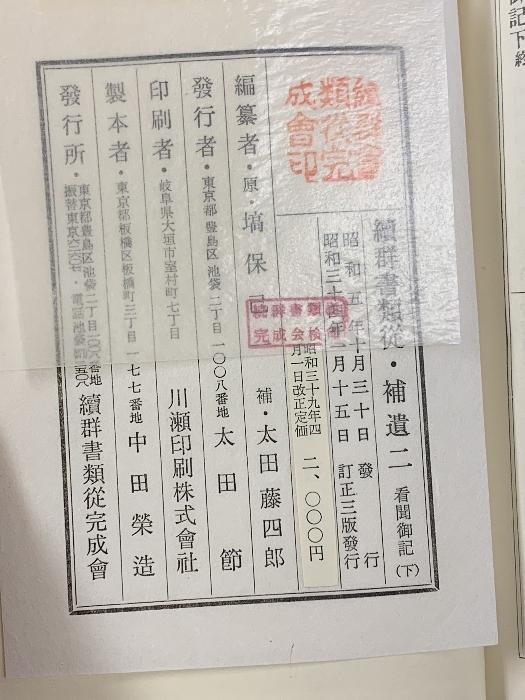 續群書類從・補遺二 看聞御記(下)
昭和五年十月三十日 發行
昭和三十四年二月十五日 訂正三版發行
昭和三十九年四月一日改正定価 二、〇〇〇円
續群書類從完成會印
編纂者・原・塙保己一 補・太田藤四郎
發行者・東京都豊島区池袋二丁目一〇〇八番地 太田節
印刷者・岐阜県大垣市室村町七丁目 川瀬印刷株式會社
製本者・東京都板橋区板橋町三丁目一七七番地 中田榮造
發行所・東京都豊島区池袋二丁目一〇〇八番地 續群書類從完成會
振替東京六二六〇七・電話池袋